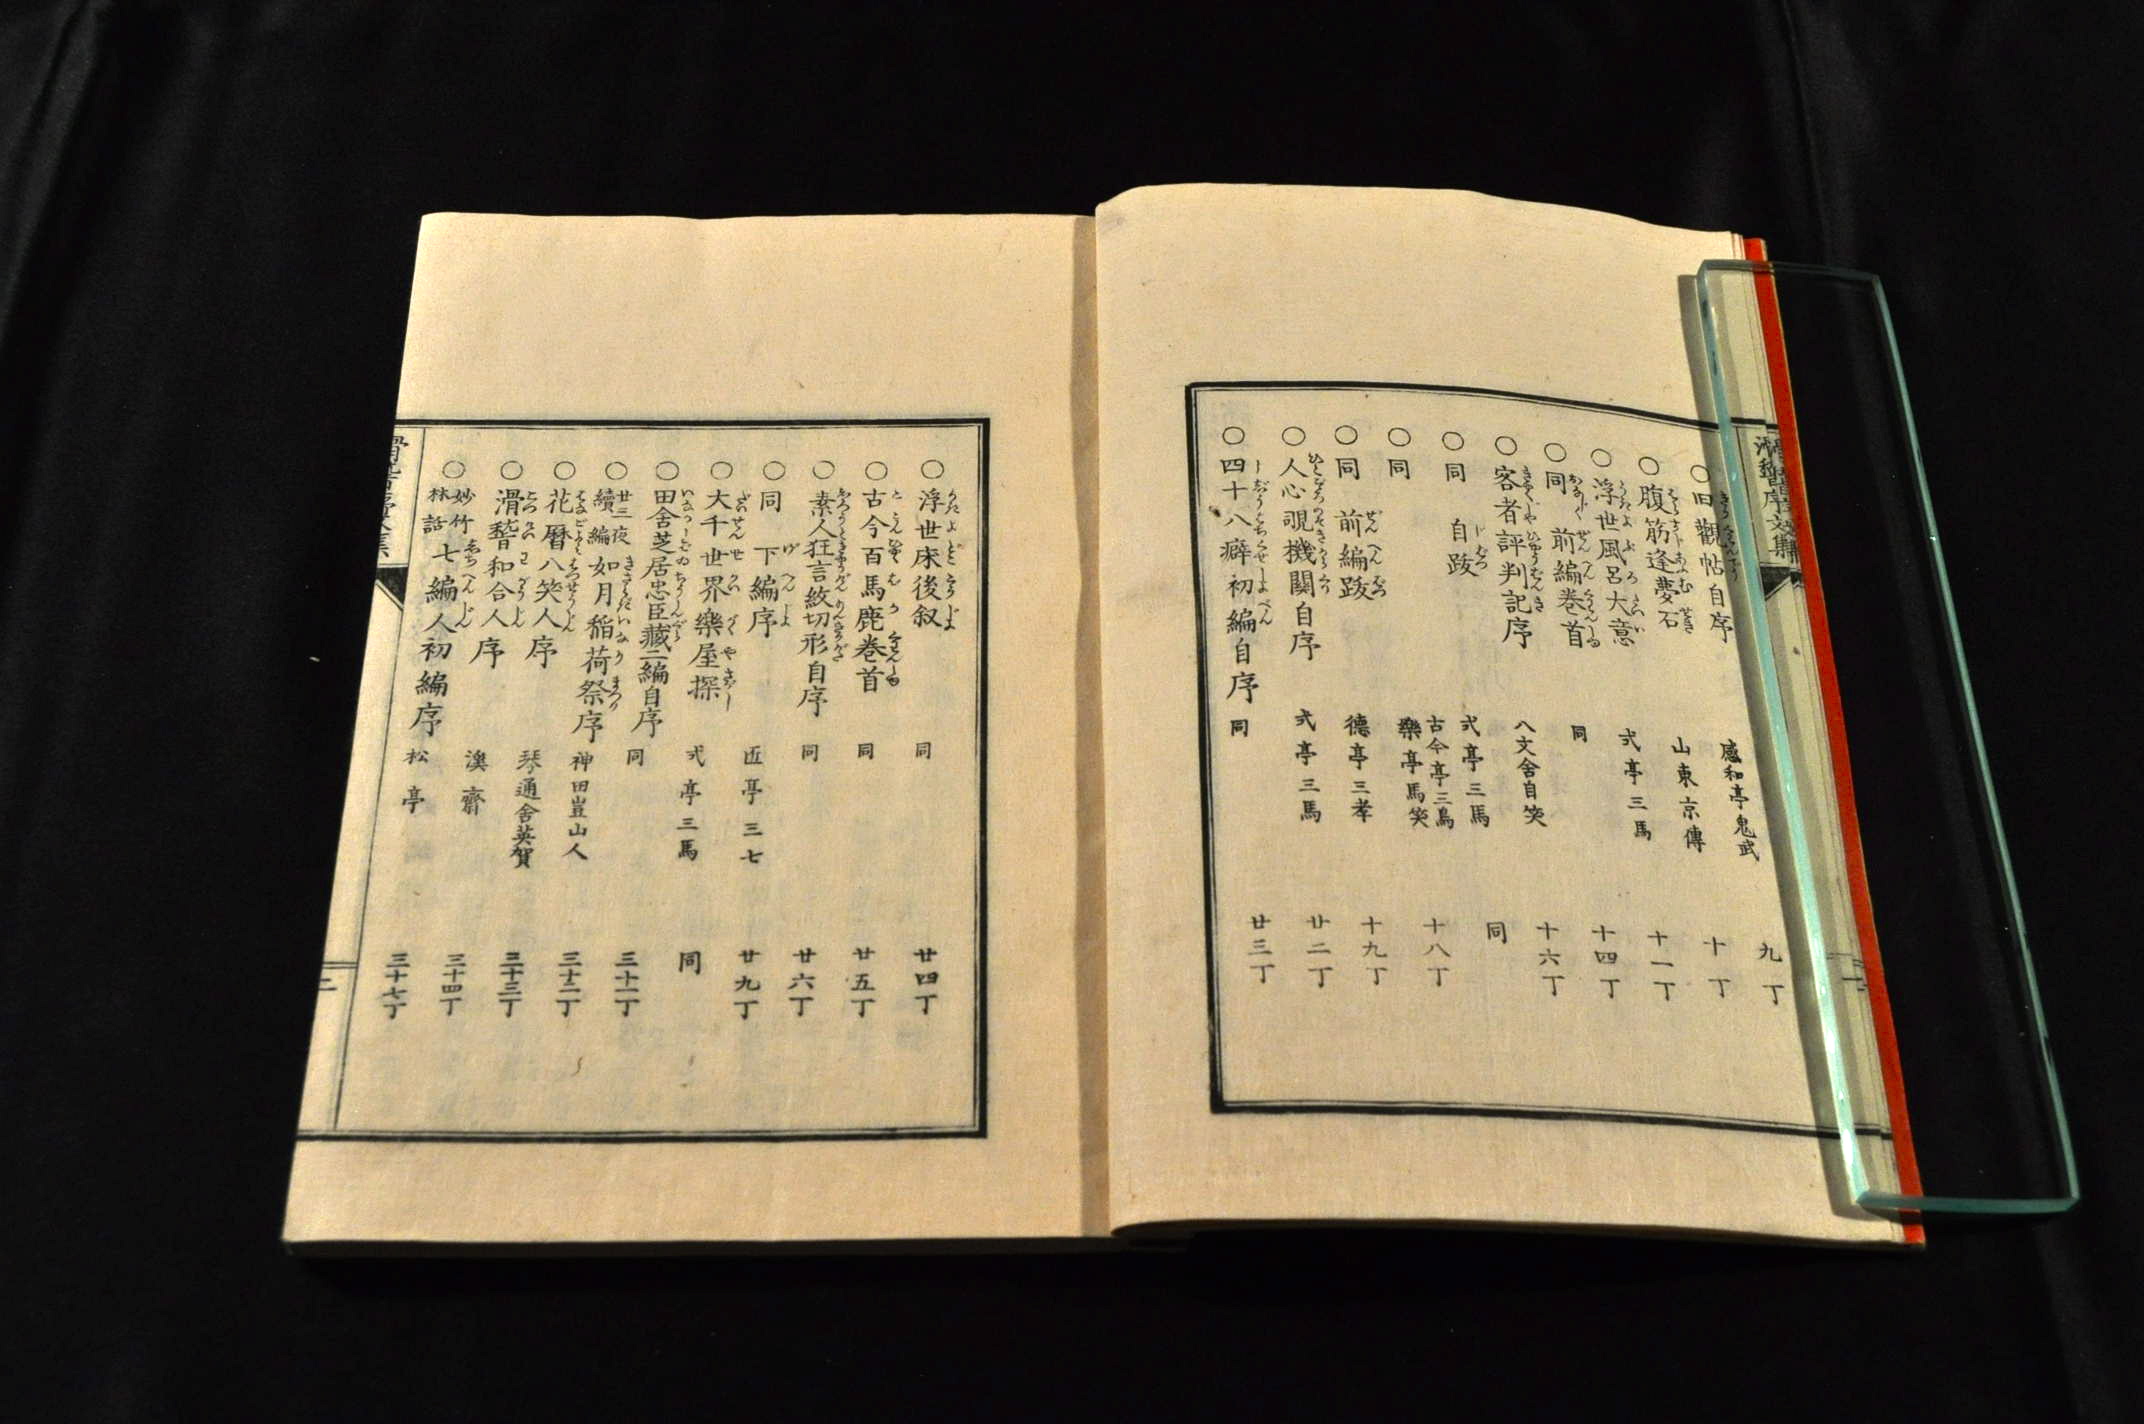 滑稽序文集
○旧觀帖自序 感和亭鬼武 九丁
○腹筋逢夢石 山東京傳 十丁
○浮世風呂大意 式亭三馬 十一丁
○同 前編巻首 同 十四丁
○客者評判記序 八文舍自笑 十六丁
○同 自跋 式亭三馬 同
○同 古今亭三鳥 樂亭馬笑 十八丁
○同 前編跋 德亭三孝 十九丁
○人心覗機關自序 式亭三馬 廿二丁
○四十八癖初編自序 同 廿三丁
○浮世床後叙 同 廿四丁
○古今百馬鹿巻首 同 廿五丁
○素人狂言紋切形自序 同 廿六丁
○同 下編序 匠亭三七 廿九丁
○大千世界樂屋探 式亭三馬 同
○田舍芝居忠臣藏二編自序 同 三十一丁
○廿三夜續編如月稲荷祭序 神田豈山人 三十二丁
○花暦八笑人序 琴通舍英賀 三十三丁
○滑稽和合人序 溪齋 三十四丁
○妙竹林話七編人初編序 松亭 三十七丁
二